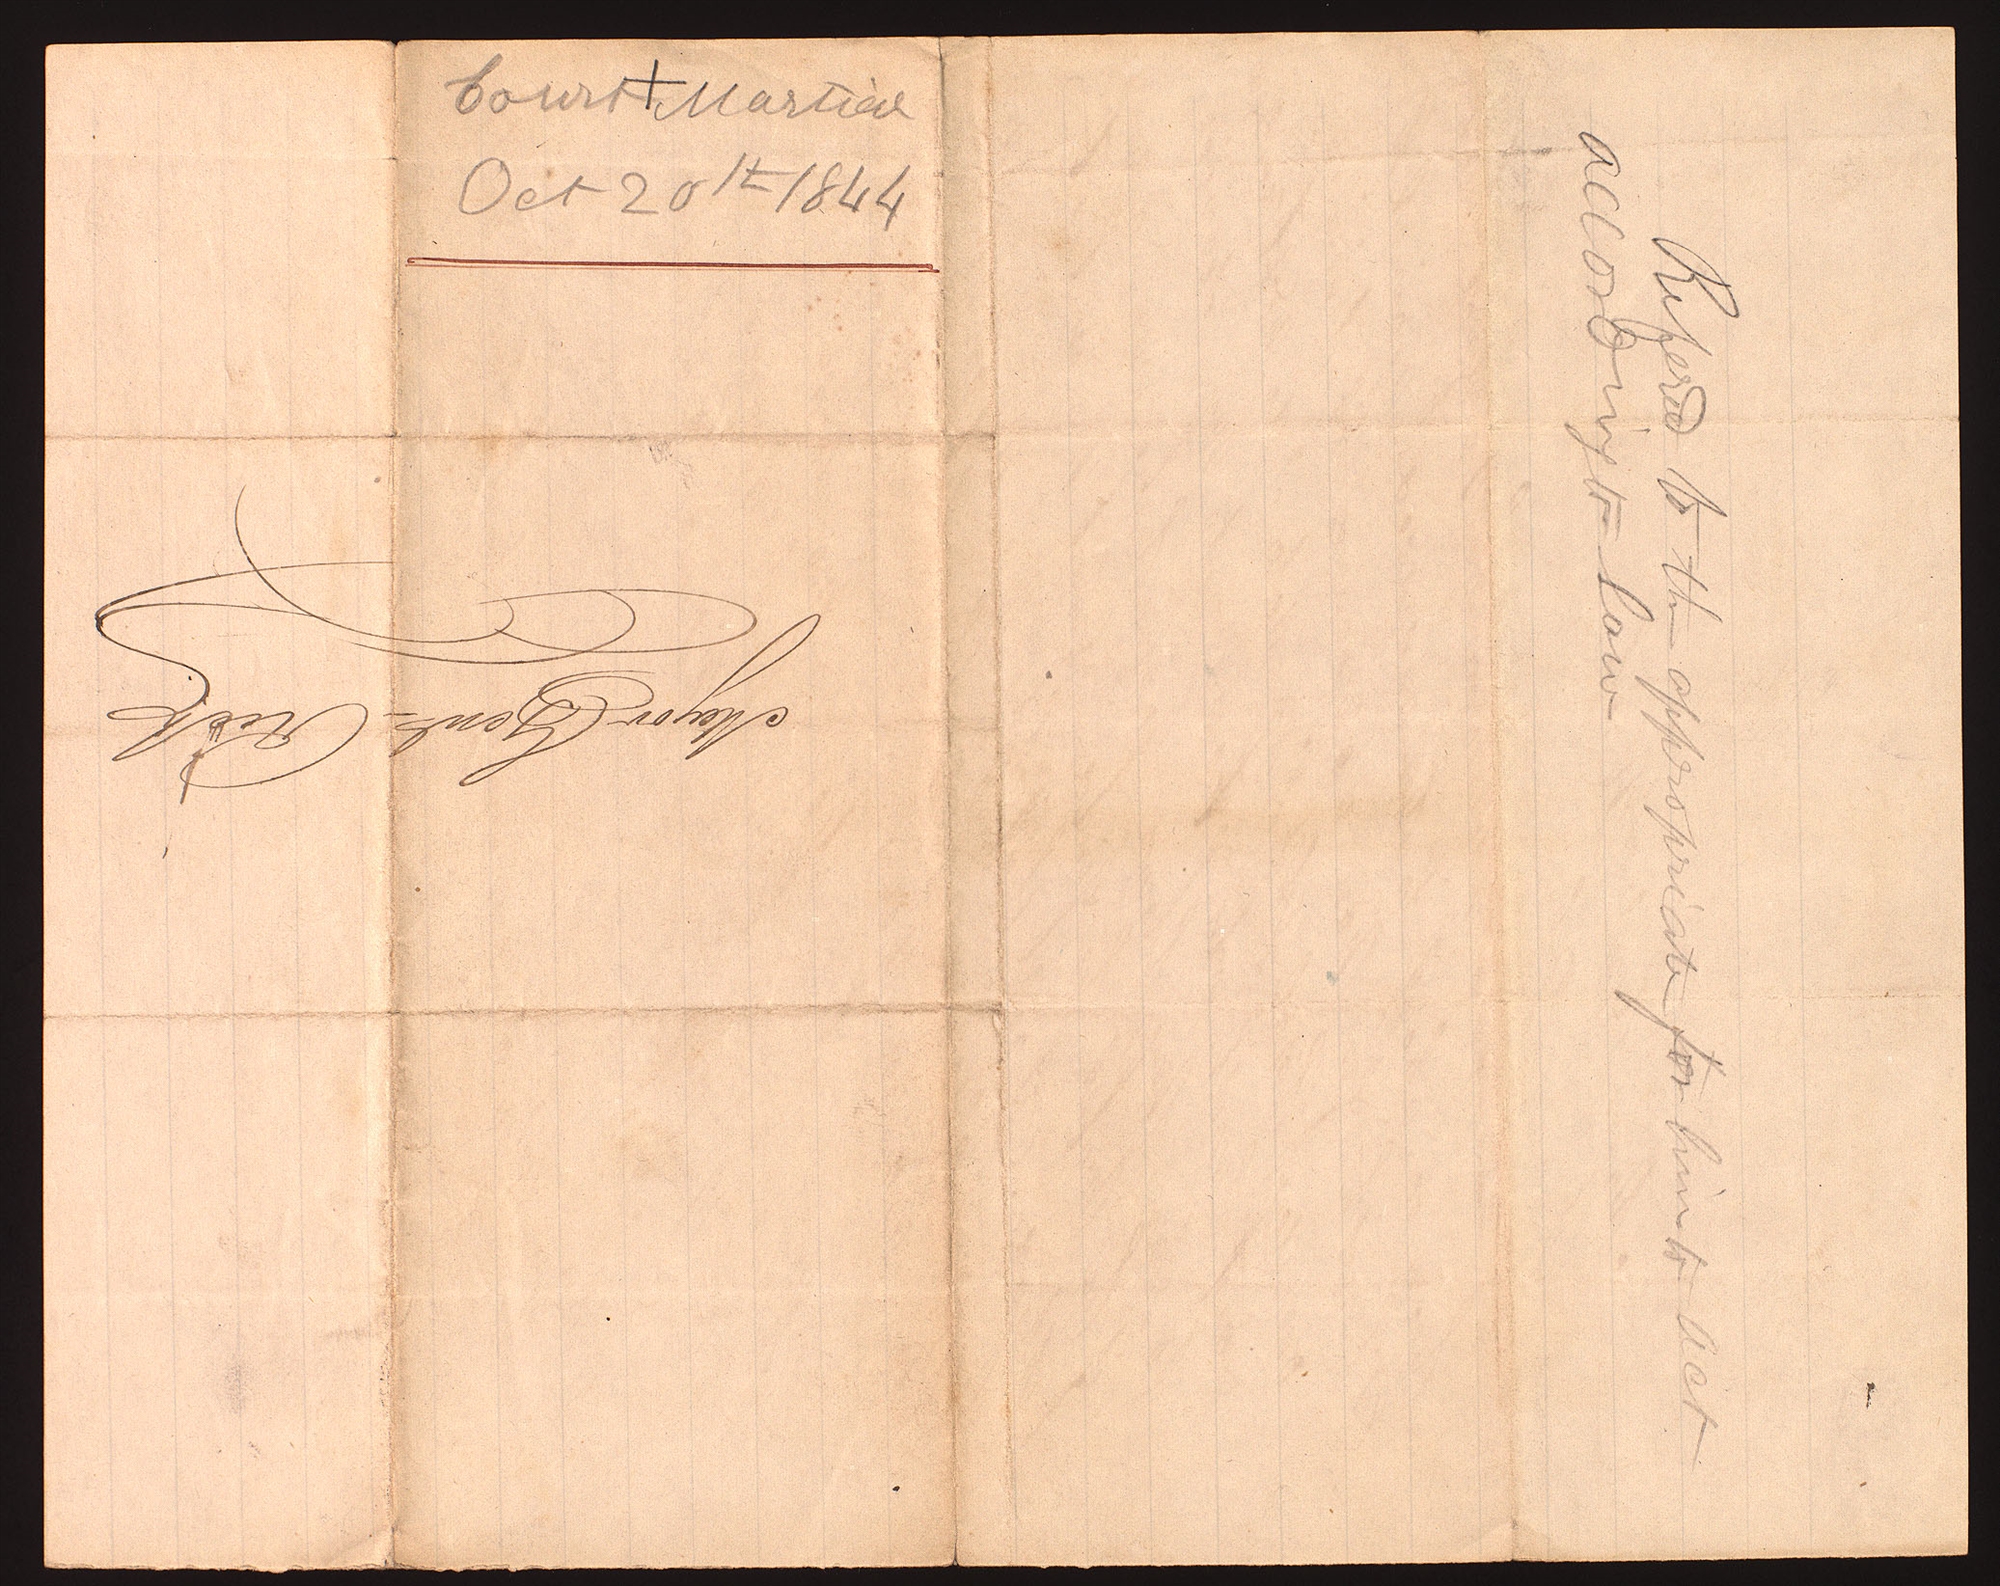 Court Martial
Oct 20th 1844
Mayor Genl Pitch
Refered to the appropriate for him to act
according to law